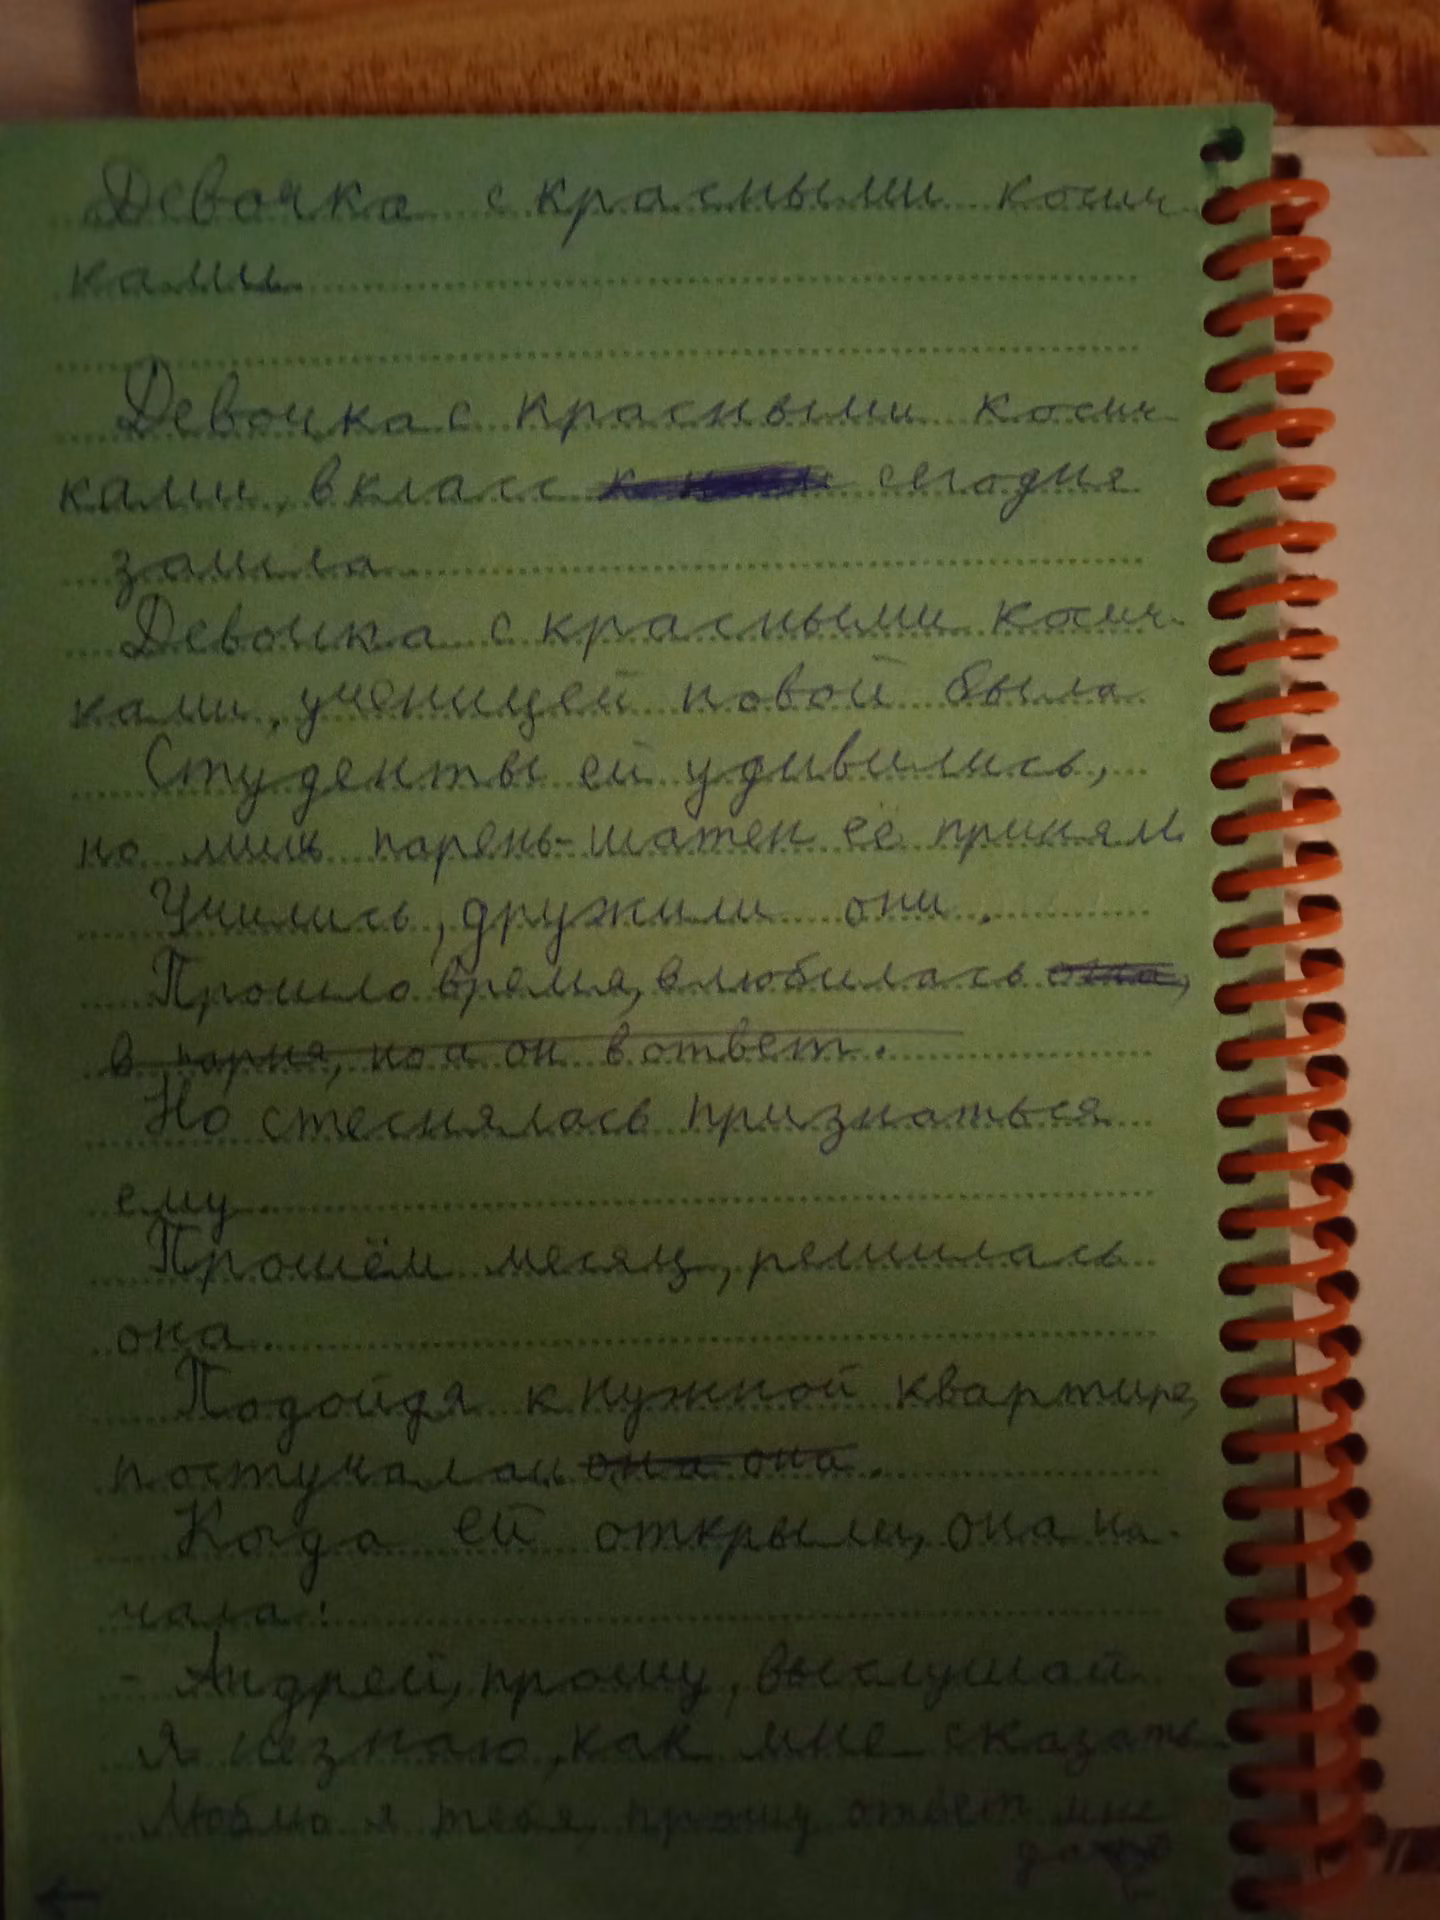 Девочка с красными косич-
ками
Девочка с красными косич-
ками, в класс сегодня
зашла
Девочка с красными косич-
ками, ученицей новой была
Студенты ей удивились,
но лишь парень-шатен её принял
Учились, дружили они.
Прошло время, влюбилась она,
в парня, но а он в ответ.
Но стеснялась признаться
ему
Прошёл месяц, решилась
она
Подойдя к нужной квартире,
постучалаи она она.
Когда ей открыли, она на-
чала:
- Андрей, прошу, выслушай
Я не знаю, как мне сказать
Люблю я тебя, прошу ответ мне